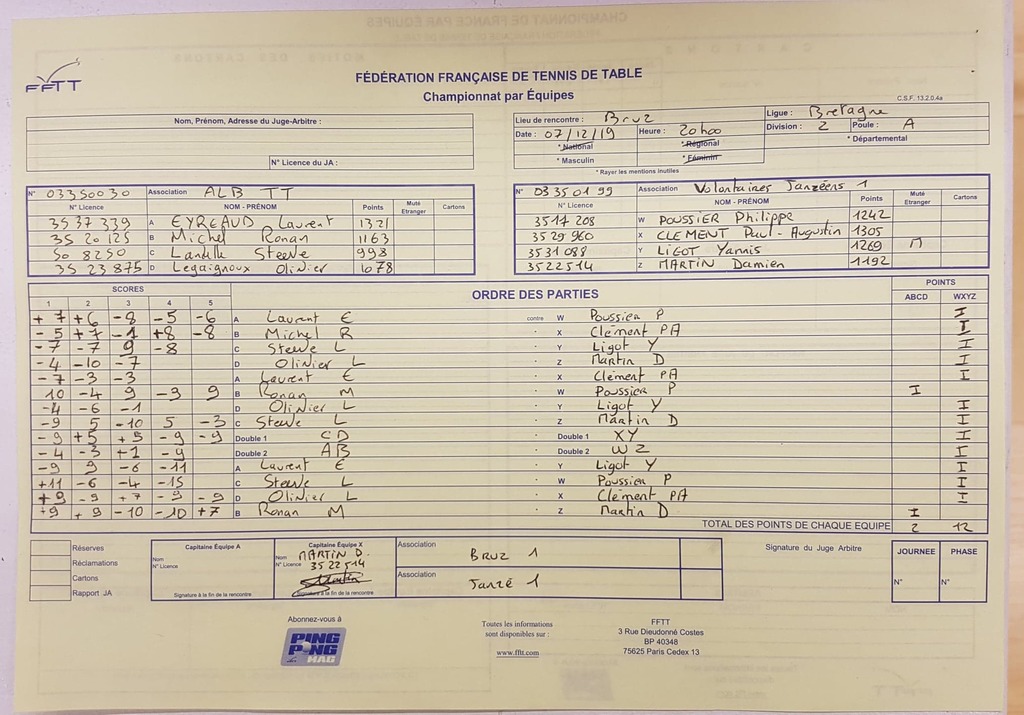 FFTT
FÉDÉRATION FRANÇAISE DE TENNIS DE TABLE
Championnat par Équipes
C.S.F. 13.2.0.4a
Nom, Prénom, Adresse du Juge-Arbitre :
N° Licence du JA :
Lieu de rencontre : Bruz Ligue : Bretagne
Date : 07/12/19 Heure : 20h00 Division : 2 Poule : A
* National * Régional * Départemental
* Masculin * Féminin
* Rayer les mentions inutiles
N° 03350030 Association ALB TT
N° Licence NOM - PRÉNOM Points Muté Etranger Cartons
3537339 A EYREAUD Laurent 1321
3520125 B Michel Ronan 1163
508250 C Steeve 998
3523875 D Legaignoux Olinier 1078
N° 03350199 Association Volontaires Janzéens 1
N° Licence NOM - PRÉNOM Points Muté Etranger Cartons
3517208 W POUSSIER Philippe 1242
3529960 X CLEMENT Paul-Augustin 1305
3531088 Y LIGOT Yannis 1269 M
3522514 Z MARTIN Damien 1192
SCORES ORDRE DES PARTIES POINTS
1 2 3 4 5 ABCD WXYZ
+7 +6 -8 -5 -6 A Laurent E contre W Poussier P I
-5 +7 -1 +8 -8 B Michel R - X Clément PA I
-7 -7 9 -8 C Steeve L - Y Ligot Y I
-4 -10 -7 D Olinier L - Z Martin D I
-7 -3 -3 A Laurent E - X Clément PA I
10 -4 9 -3 9 B Ronan M - W Poussier P I
-4 -6 -1 D Olinier L - Y Ligot Y I
-9 5 -10 5 -3 C Steeve L - Z Martin D I
-9 +5 +5 -9 -9 Double 1 CD - Double 1 XY I
-4 -3 +1 -9 Double 2 AB - Double 2 WZ I
-9 9 -6 -11 A Laurent E - Y Ligot Y I
+11 -6 -4 -15 C Steeve L - W Poussier P I
+9 -9 +7 -9 -9 D Olinier L - X Clément PA I
+9 +9 -10 -10 +7 B Ronan M - Z Martin D I
TOTAL DES POINTS DE CHAQUE EQUIPE 2 12
Réserves
Réclamations
Cartons
Rapport JA
Capitaine Equipe A
Nom
N° Licence
Signature à la fin de la rencontre
Capitaine Equipe X
Nom MARTIN D.
N° Licence 3522514
Signature à la fin de la rencontre
Association BRUZ 1
Association Janzé 1
Signature du Juge Arbitre
JOURNEE PHASE
N° N°
Abonnez-vous à
PING PONG MAG
Toutes les informations
sont disponibles sur :
www.fftt.com
FFTT
3 Rue Dieudonné Costes
BP 40348
75625 Paris Cedex 13